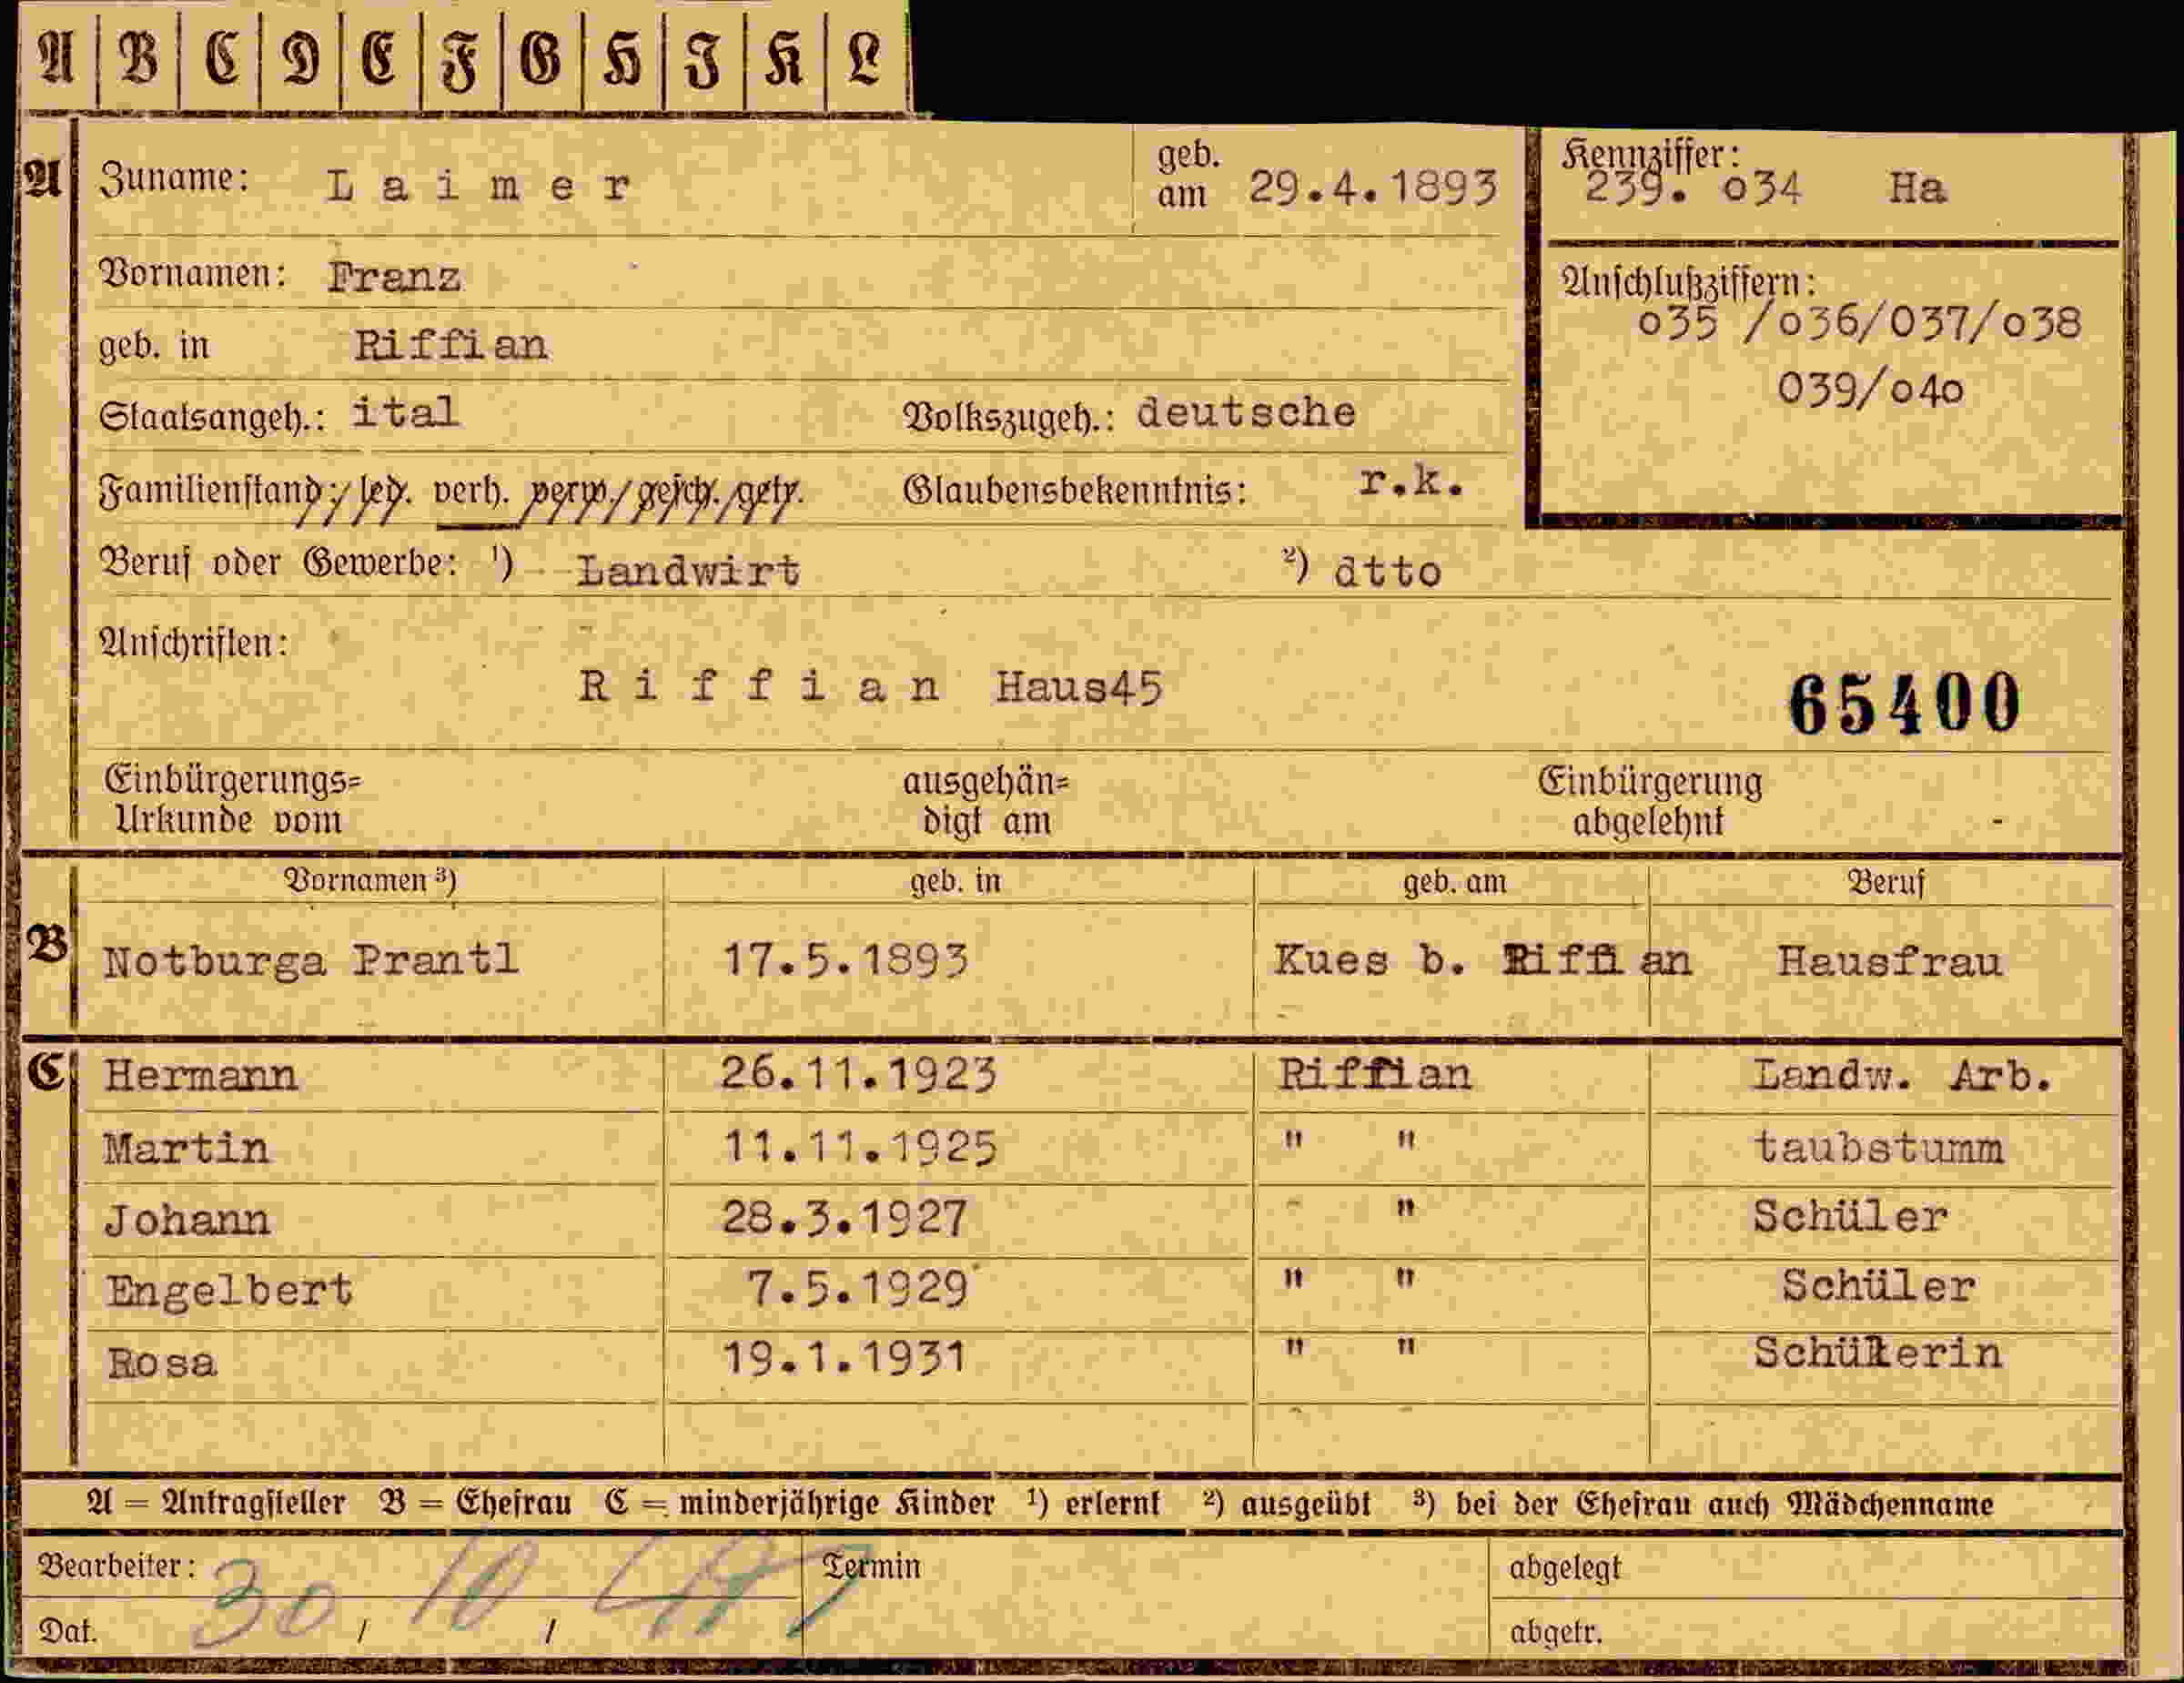 A B C D E F G H I K L
A Zuname: Laimer geb. am 29.4.1893 Kennziffer: 239. o34 Ha
Vornamen: Franz
Anschlußziffern:
o35 /o36/037/o38
039/o4o
geb. in Riffian
Staatsangeh.: ital Volkszugeh.: deutsche
Familienstand: led. verh. verw. gesch. getr. Glaubensbekenntnis: r.k.
Beruf oder Gewerbe: ¹) Landwirt ²) dtto
Anschriften:
Riffian Haus45
65400
Einbürgerungs= ausgehän= Einbürgerung
Urkunde vom digt am abgelehnt -
Vornamen ³) geb. in geb. am Beruf
B Notburga Prantl 17.5.1893 Kues b. Riffian Hausfrau
C Hermann 26.11.1923 Riffian Landw. Arb.
Martin 11.11.1925 " " taubstumm
Johann 28.3.1927 " " Schüler
Engelbert 7.5.1929 " " Schüler
Rosa 19.1.1931 " " Schülerin
A = Antragsteller B = Ehefrau C = minderjährige Kinder ¹) erlernt ²) ausgeübt ³) bei der Ehefrau auch Mädchenname
Bearbeiter: Termin abgelegt
Dat. 30 / 10 / abgetr.